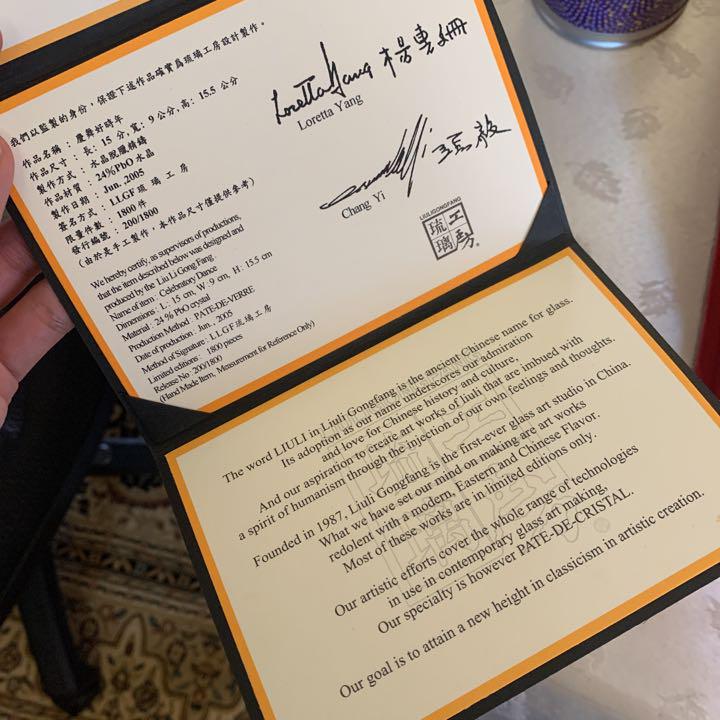 我們以監製的身份，保證下述作品確實爲琉璃工房設計製作。
作品名稱：慶舞好時年
作品尺寸：長：15 分,寬：9 公分,高：15.5 公分
製作方式：水晶脫臘精鑄
作品材質：24%PbO 水晶
製作日期：Jun, 2005
簽名方式：LLGF 琉 璃 工 房
限量件數：1800 件
發行編號：200/1800
(由於是手工製作，本作品尺寸僅提供參考)
We hereby certify, as supervisors of productions,
that the item described below was designed and
produced by the Liu Li Gong Fang.
Name of item : Celebratory Dance
Dimensions : L : 15 cm, W : 9 cm, H : 15.5 cm
Material : 24 % PbO crystal
Production Method : PATE-DE-VERRE
Date of production : Jun, 2005
Method of Signature : LLGF琉 璃 工 房
Limited editions : 1800 pieces
Release No : 200/1800
(Hand Made Item, Measurement for Reference Only)
Loretta Yang 楊惠姍
Loretta Yang
張毅
Chang Yi
LIULIGONGFANG
琉璃工房
The word LIULI in Liuli Gongfang is the ancient Chinese name for glass.
Its adoption as our name underscores our admiration
and love for Chinese history and culture,
And our aspiration to create art works of liuli that are imbued with
a spirit of humanism through the injection of our own feelings and thoughts.
Founded in 1987, Liuli Gongfang is the first-ever glass art studio in China.
What we have set our mind on making are art works
redolent with a modern, Eastern and Chinese Flavor.
Most of these works are in limited editions only.
Our artistic efforts cover the whole range of technologies
in use in contemporary glass art making,
Our specialty is however PATE-DE-CRISTAL.
Our goal is to attain a new height in classicism in artistic creation.